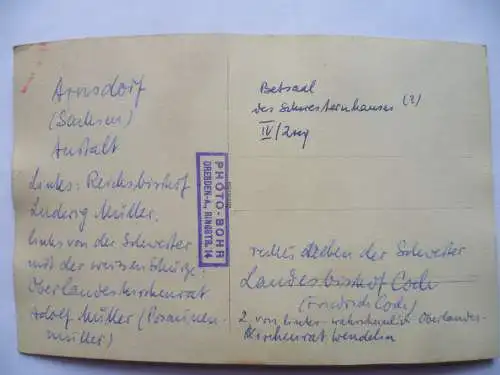 Arnsdorf
(Sachsen)
Anstalt
Links: Reichsbischof
Ludwig Müller.
links von der Schwester
mit der weissen Schürze:
Oberlandeskirchenrat
Adolf Müller (Posaunen-
müller)
PHOTO-BOHR
DRESDEN-A., RINGSTR. 14
Betsaal
des Schwesternhauses (?)
IV/
rechts neben der Schwester
Landesbischof Coch
(Friedrich Coch)
2. von links wahrscheinlich Oberlandes-
kirchenrat Wendelin